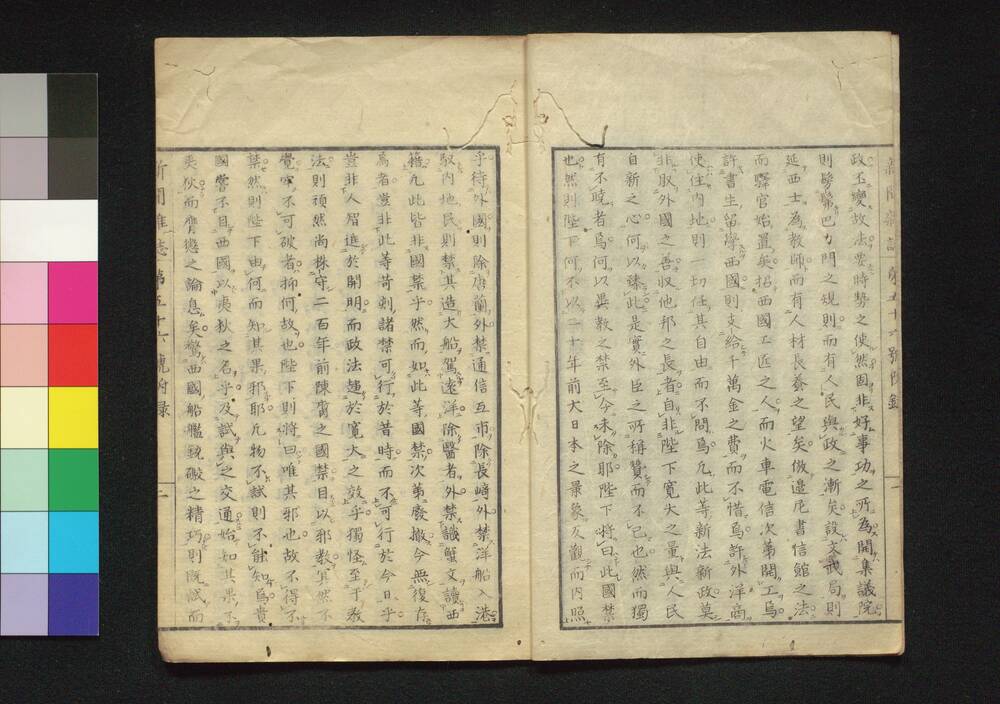 新聞雜誌 第五十六號附録 一
政丕變故法雲時勢之使然固非好事功之所為開集議院
則髣髴巴力門之規則而有人民與政之漸矣設文武局則
延西士為教師而有人材長養之望矣倣邉尼書信館之法
而驛官始置矣招西國工匠之人而火車電信次第開工焉
許書生留學西國則支給千萬金之費而不惜焉許外洋商
使住内地則一切任其自由而不問焉凡此等新法新政莫
非取外國之善收他邦之長者自非陛下寛大之量與人民
自新之心何以臻此是實外臣之所稱贊而不已也然而獨
有不曉者焉何以異教之禁至今未除耶陛下將曰此國禁
也然則陛下何不以二十年前大日本之景象反觀而内照
乎待外國則除唐蘭外禁通信互市除長﨑外禁洋船入港
馭内地民則禁其造大船駕遠洋除醫者外禁讀蟹文讀西
籍凡此皆非國禁乎然而如此等國禁次第廢撤今無復存
焉者豈非此等苛刻諸禁可行於昔時而不可行於今日乎
豈非人智進於開明而政法趨於寛大之效乎獨怪至于教
法則頑然尚株守二百年前陳腐之國禁目以邪教冥然不
覺牢不可破者抑何故也陛下則將曰唯其邪也故不得不
禁然則陛下由何而知其果邪耶凡物不試則不能知焉貴
國嘗不目西國以夷狄之名乎及試與之交通始知其果不
夷狄而膺懲之論息矣驚西國船艦銃礮之精巧則既試而
新聞雜誌 第五十六號附録 二